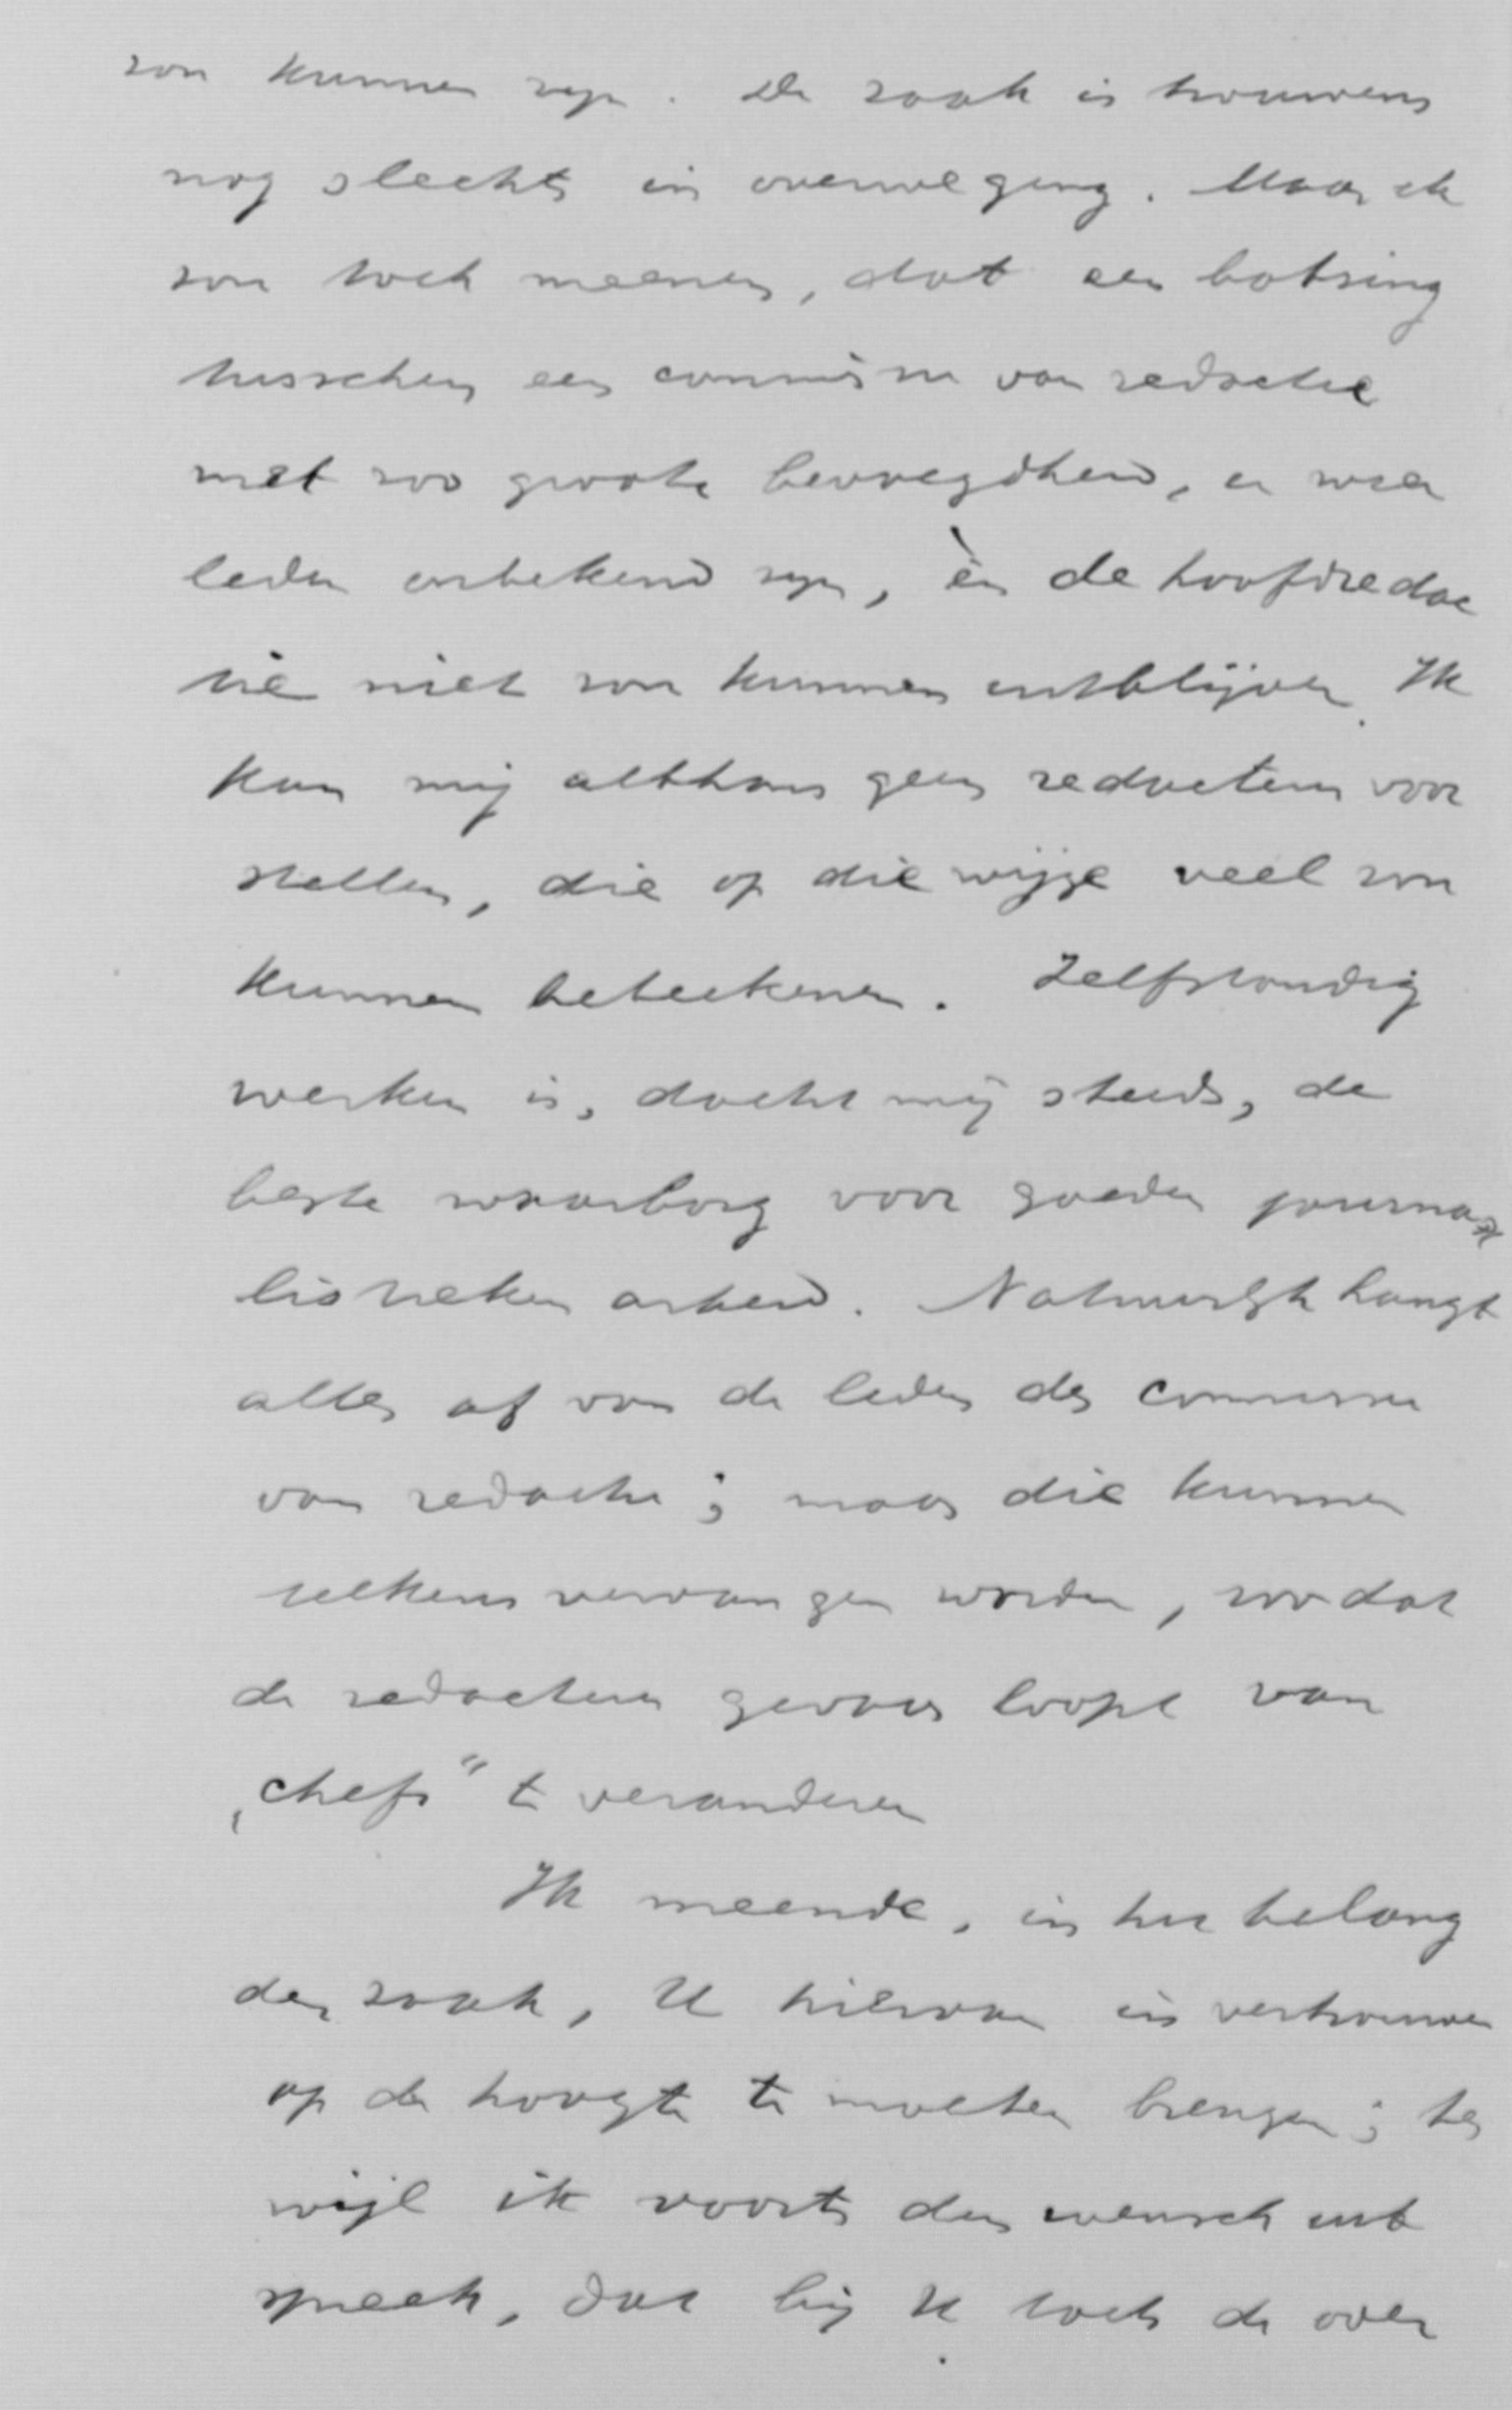 zou kunnen zijn. De zaak is trouwens
nog slechts in overweging. Maar ik
zou toch meenen, dat een botsing
tusschen een commissie van redactie
met zoo groote bevoegdheid, en wier
leden onbekend zijn, èn de hoofdredac
tie niet zou kunnen uitblijven. Ik
kan mij althans geen redacteur voor
stellen, die op die wijze veel zou
kunnen beteekenen. Zelfstandig
werken is, dacht mij steeds, de
beste waarborg voor goeden journa-
listieken arbeid. Natuurlijk hangt
alles af van de leden der commissie
van redactie; maar die kunnen
telkens vervangen worden, zoodat
de redacteur gevaar loopt van
„chefs" te veranderen
Ik meende, in het belang
der zaak, U hiervan in vertrouwen
op de hoogte te moeten brengen; ter
wijl ik voorts den wensch uit
spreek, dat bij U toch de over